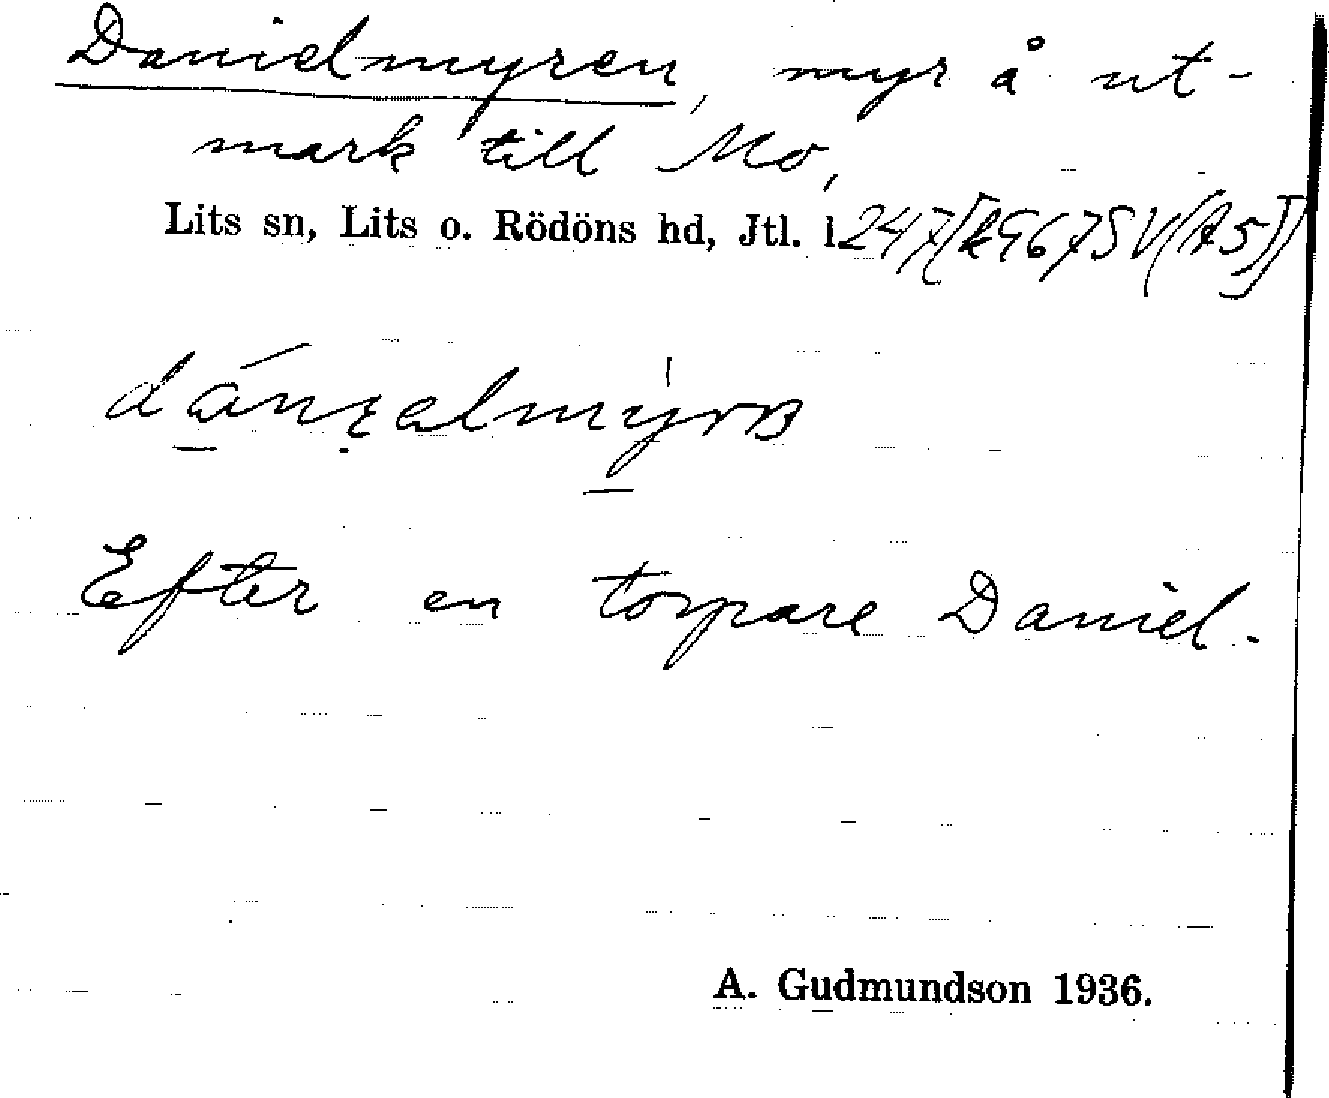 Danielmyren, myr å ut-
mark till Mo,
Lits sn, Lits o. Rödöns hd, Jtl. l.
Efter en torpare Daniel.
A. Gudmundson 1936.